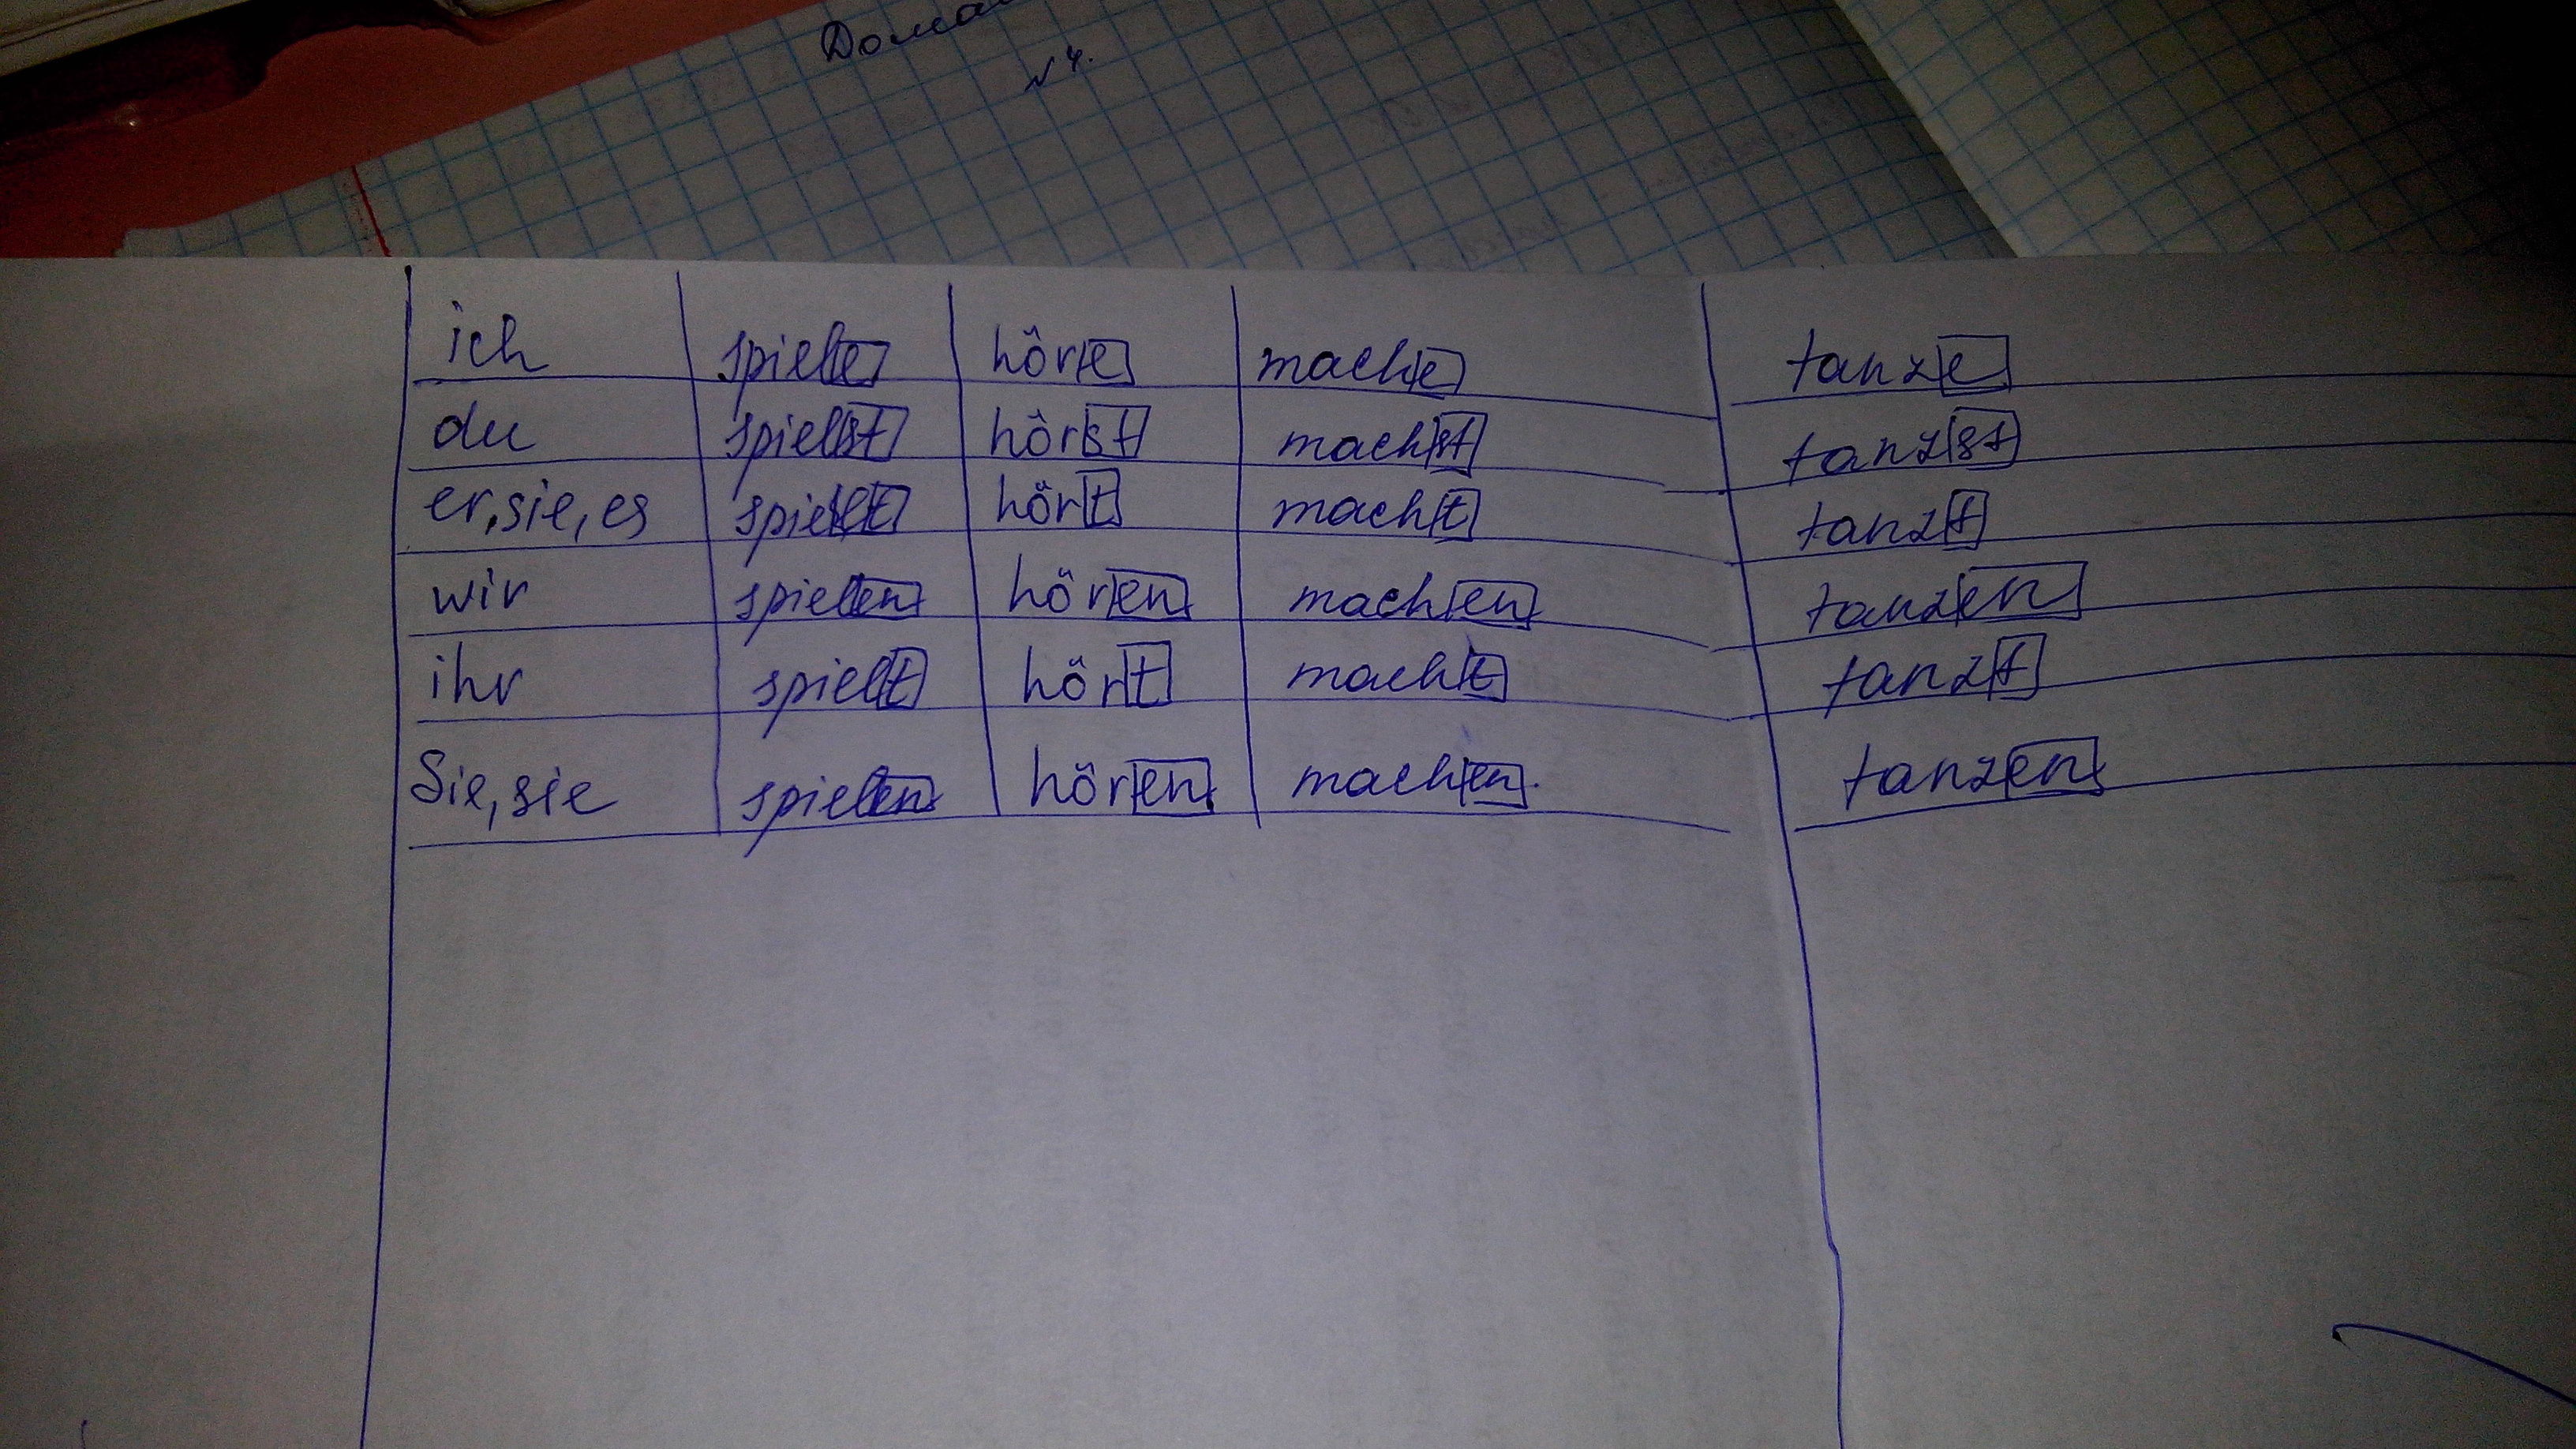 №4.
ich spiele höre mache tanze
du spielst hörst machst tanzst
er, sie, es spielt hört macht tanzt
wir spielen hören machen tanzen
ihr spielt hört macht tanzt
Sie, sie spielen hören machen. tanzen